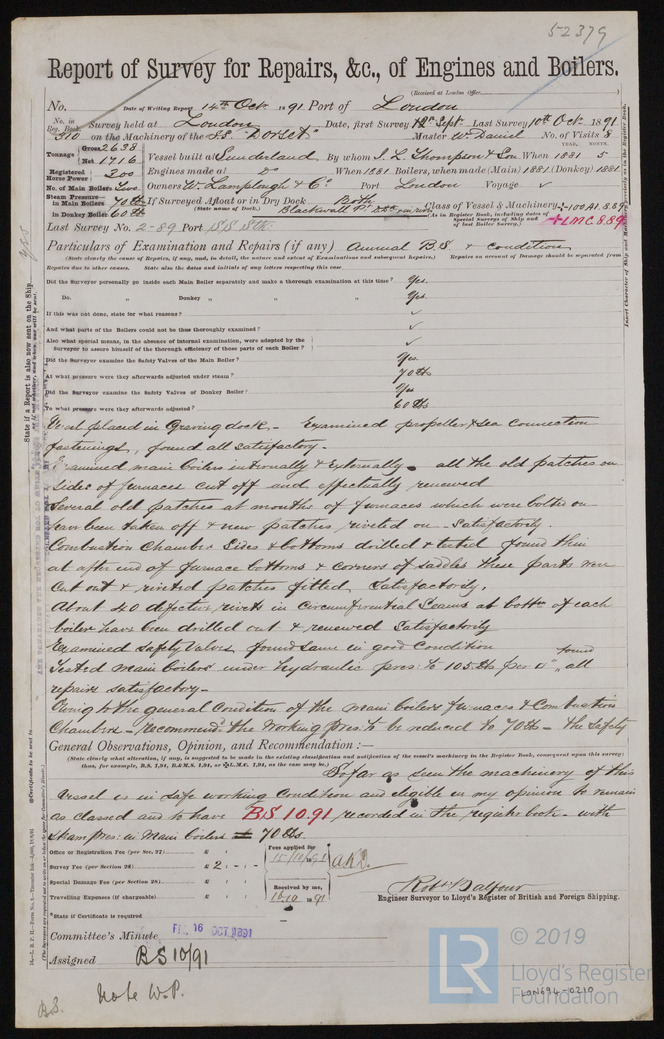 52379
Report of Survey for Repairs, &c., of Engines and Boilers.
(Received at London Office
No. Date of Writing Report 14th Oct 1891 Port of London
No. in Reg. Book. 310 Survey held at London Date, first Survey 12th Sept Last Survey 10th Oct 1891
on the Machinery of the SS "Dorset" Master W. Daniel No. of Visits 8
Tonnage Gross 2638 Net 1716
YEAR. MONTH.
Vessel built at Sunderland By whom J. L. Thompson & Son When 1881 5
Registered Horse Power 200 Engines made at Do When 1881 Boilers, when made (Main) 1881 (Donkey) 1881
No. of Main Boilers Two Owners W. Lamplough & Co Port London Voyage ✓
Steam Pressure in Main Boilers 70 lbs If Surveyed Afloat or in Dry Dock Both
(State name of Dock.) Blackwall Pt. Class of Vessel & Machinery 100A1. 8.89
in Donkey Boiler 60 lbs (As in Register Book, including dates of Special Surveys of Ship and of last Boiler Survey.) +LMC 8.89
Last Survey No. 2-89 Port
Particulars of Examination and Repairs (if any) Annual B.S & condition
(State clearly the cause of Repairs, if any, and, in detail, the nature and extent of Examinations and subsequent Repairs.) Repairs on account of Damage should be separated from
Repairs due to other causes. State also the dates and initials of any letters respecting this case
Did the Surveyor personally go inside each Main Boiler separately and make a thorough examination at this time? Yes.
Do. " Donkey " " " Yes.
If this was not done, state for what reasons? ✓
And what parts of the Boilers could not be thus thoroughly examined? ✓
Also what special means, in the absence of internal examination, were adopted by the
Surveyor to assure himself of the thorough efficiency of those parts of each Boiler? ✓
Did the Surveyor examine the Safety Valves of the Main Boiler? Yes.
At what pressure were they afterwards adjusted under steam? 70 lbs
Did the Surveyor examine the Safety Valves of Donkey Boiler? Yes
To what pressure were they afterwards adjusted? 60 lbs
Vessel placed in Graving dock. - Examined propeller & sea connection
fastenings, found all satisfactory.
Examined main boilers internally & Externally. all the old patches on
sides of furnaces cut off and effectually renewed
Several old patches at mouths of furnaces which were bolted on
have been taken off & new patches riveted on - Satisfactorily.
Combustion Chamber Sides & bottoms drilled & tested found thin
at after end of furnace bottoms & corners of saddles these parts were
cut out & riveted patches fitted. Satisfactorily.
About 40 defective rivets in Circumferential Seams at bottm of each
boiler have been drilled out & renewed Satisfactorily
Examined Safety Valves found same in good Condition
Tested Main boilers under hydraulic pres: to 105 lbs per □" found all
repairs satisfactory -
Owing to the general Condition of the main boilers furnaces & Combustion
Chambers - recommend the Working Pres. to be reduced to 70 lbs - the Safety
General Observations, Opinion, and Recommendation :—
(State clearly what alteration, if any, is suggested to be made in the existing classification and notification of the vessel's machinery in the Register Book, consequent upon this survey;
thus, for example, B.S. 1,91, B.&M.S. 1,91, or L.M.C. 1,91, as the case may be.)
So far as seen the machinery of this
Vessel is in safe working Condition and eligible in my opinion to remain
as classed and to have BS 10.91 recorded in the register book. with
Steam pres: in Main boilers = 70 lbs.
Office or Registration Fee (per Sec. 27) £ : :
Fees applied for
15/10/1891
Survey Fee (per Section 28) £ 2 : - : -
Special Damage Fee (per Section 28) £ : :
Received by me,
Travelling Expenses (if chargeable) £ : :
16.10 1891
Robt. Balfour
Engineer Surveyor to Lloyd's Register of British and Foreign Shipping.
*State if Certificate is required
Committee's Minute FRI. 16 OCT 1891
Assigned BS 10/91
Note W.P.
B.S.
State if a Report is also now sent on the Ship.
yes
© 2019
Lloyd's Register
Foundation
LON694-0210